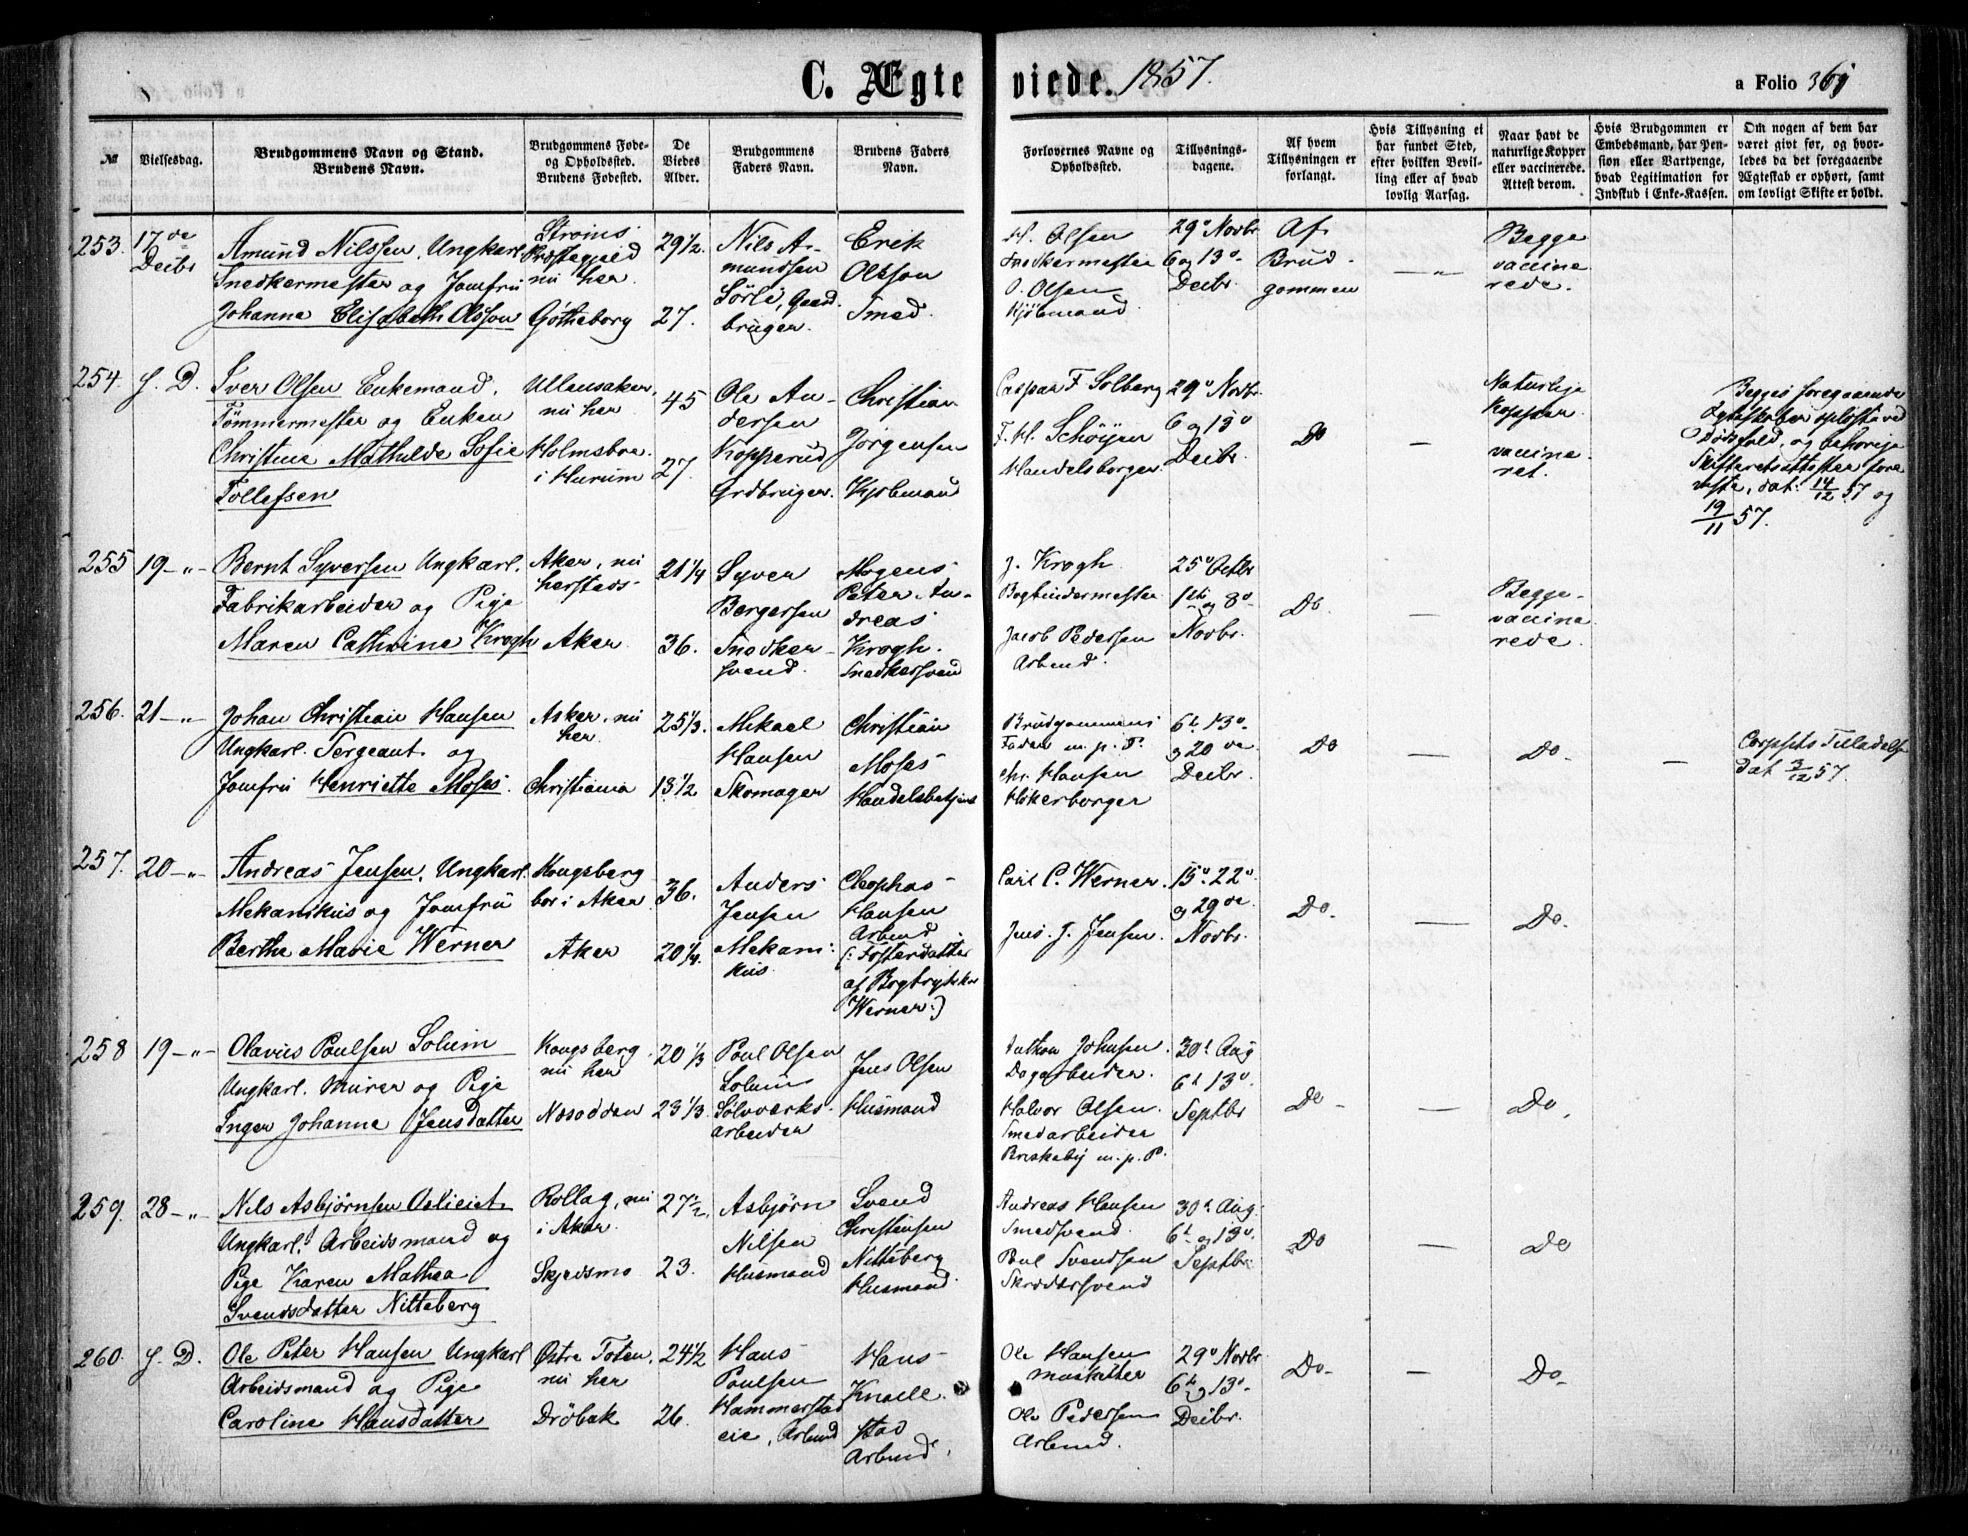 C. Ægteviede. 1857.
a Folio 361
№
Vielsesdag.
Brudgommens Navn og Stand.
Brudens Navn.
Brudgommens Føde-
og Opholdssted.
Brudens Fødested.
De
Viedes
Alder.
Brudgommens
Faders Navn.
Brudens Faders
Navn.
Forlovernes Navne og
Opholdssted.
Tillysnings-
dagene.
Af hvem
Tillysningen er
forlangt.
Hvis Tillysning ei
har fundet Sted,
efter hvilken Bevil-
ling eller af hvad
lovlig Aarsag.
Naar havt de
naturlige Kopper
eller vaccinerede.
Attest derom.
Hvis Brudgommen er
Embedsmand, har Pen-
sion eller Vartpenge,
hvad Legitimation for
Indskud i Enke-Kassen.
Om nogen af dem har
været givt før, og hvor-
ledes da det foregaaende
Ægteskab er ophørt, samt
om lovligt Skifte er holdt.
253. 17de Decbr
Amund Nilssen, Ungkarl
Snedkermester og Jomfru
Johanna Elisabeth Olsson
Præstegjeld
nu her.
Gøtheborg
29 1/2
27.
Nils A-
mundsen
Sörli, Gaard
bruger.
Erik
Olsson
Smed.
H. Olsen
Snedkermester
O. Olsen
Kjøbmand.
29o Novbr
6 og 13o
Decbr.
Af
Brud-
gommen
— „
Begge
vaccine
rede.
254. f. D.
Iver Olsen Enkemand.
Tømmermester og Enken
Christine Mathilde Sofie
Tollefsen
Ullensaker,
nu her
Holmsboe
i Hurum
45
27.
Ole An-
dersen
Kopperud
Grdbruger.
Christian
Jörgensen
Kjøbmand
Caspar F. Solberg
F. H. Schöyen
Handelsborger.
29o Novbr.
6 og 13o
Decbr.
Do
—
Naturlige
Kopper
vaccine
ret.
Begges foregaaende
Ægteskaber opløste ved
Dødsfald, og behørige
Skifteretsattester fore
viste, dat. 14/12 57 og
19/11 57.
255 19 - „ -
Bernt Syversen Ungkarl.
Fabrikarbeider og Pige
Maren Cathrine Krogh
Aker, nu
hersteds
Aker
21 1/4
36.
Syver
Bergersen
Snedker-
svend.
Mogens
Peter An-
dreas
Krogh.
Snedkersvend
J. Krogh
Bogbindermester
Jacob Pedersen
Arbmd.
25o Octbr
1ste og 8o
Novbr.
Do.
—
Begge
vaccine
rede.
256. 21 - „ -
Johan Christian Hansen
Ungkarl. Sergeant. og
Jomfru Henriette Moses.
Asker, nu
her.
Christiania
25 1/3.
18 1/2
Mikael
Hansen
Skomager
Christian
Moses
Handelsbetjent
Brudgommens
Fader m. p. P.
Chr. Hansen
Høkerborger
6t 13o
og 20de
Decbr.
Do
—
Do.
—
Corpsets Tilladelse
dat 3/12 57.
257. 20 - „ -
Andreas Jensen, Ungkarl
Mekanikus og Jomfru
Berthe Marie Werner
Kongsberg
bor i Aker
Aker
36.
20 1/4.
Anders
Jensen
Mekani-
kus
Cleophas
Hansen
Arbmd
(: Fosterdatter
af Bogtrykker
Werner:)
Carl C. Werner.
Jens. J. Jensen.
15o. 22o
og 29de
Novbr.
Do.
—
Do.
258 19 - „ -
Olavus Paulsen Solum
Ungkarl. Murer og Pige
Inger Johanne Jensdatter
Kongsberg.
nu her
Nesodden
20 1/3
23 1/3.
Poul Olsen
Solum
Sølvverks-
arbeider
Jens Olsen
Husmand
Johnsen.
Dagarbeider.
Halvor Olsen.
Smedarbeider
Briskeby m. p. P.
30t Aug
6t 13o.
Septbr
Do -
—
Do.
259. 28 - „
Nils Asbjørnsen Oslieiet
Ungkarl. Arbeidsmand og
Pige Karen Mathea
Svendsdatter Nitteberg
Rollag, nu
i Aker.
Skjedsmo
27 1/2.
23.
Asbjørn
Nilsen
Husmand
Svend
Christensen
Nitteberg
Husmand.
Andreas Hansen
Smedsvend.
Poul Svendsen
Skræddersvend
30t Aug.
6t og 13o.
Septbr.
Do
—
Do
260. f. D.
Ole Peter Hansen Ungkarl
Arbeidsmand og Pige
Caroline Hansdatter
Østre Toten,
nu her
Dröbak
24 1/2
26.
Hans
Poulsen
Hammerstad
eie, Arbmd
Hans
Knalle
stad
Arbmd.
Ole Hansen
musketter
Ole Pedersen
Arbmd.
29o Novbr.
6te og 13o.
Decbr.
Do.
—
Do.